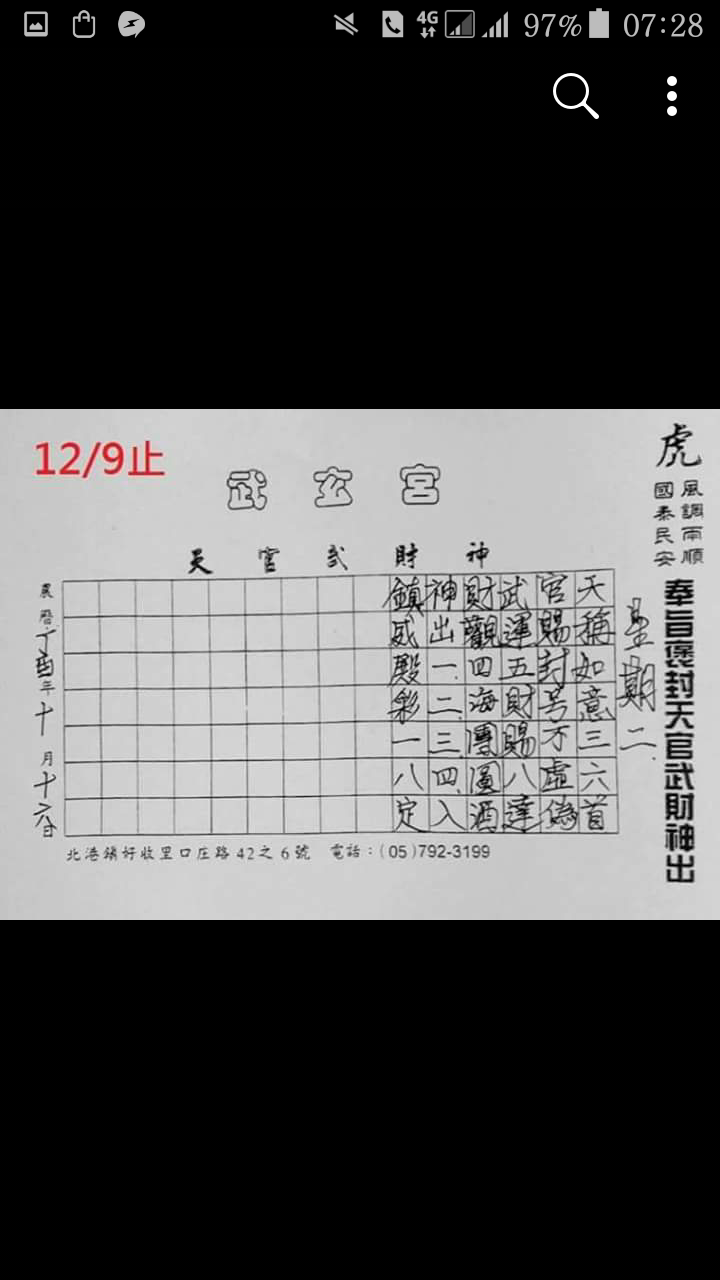 4G
97%
07:28
12/9止
武玄宮
天官武財神
虎
風調雨順
國泰民安
奉旨褒封天官武財神出
星期二
天稱如意三六首
官賜封号不虛偽
武運五財賜八達
財觀四海團圓酒
神出一二三四入
鎮威殿彩一八定
農曆丁酉年十月十六日
北港鎮好收里口庄路42之6號 電話:(05)792-3199